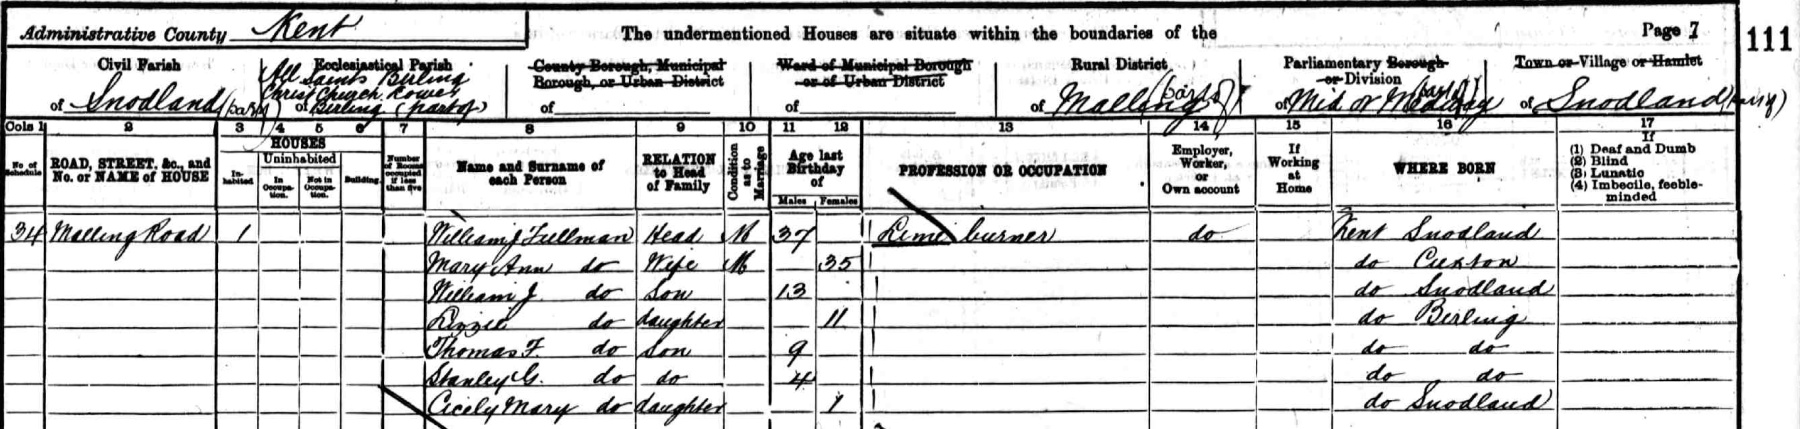 Administrative County Kent
The undermentioned Houses are situate within the boundaries of the
Page 7
111
Civil Parish
of Snodland (part of)
Ecclesiastical Parish
All Saints Birling
Christ Church Lower
of Birling (part of)
County Borough, Municipal
Borough, or Urban District
of
Ward of Municipal Borough
or of Urban District
of
Rural District
of Malling (part of)
Parliamentary Borough
or Division
of Mid or Medway (part of)
Town or Village or Hamlet
of Snodland (part of)
Cols 1 2 3 4 5 6 7 8 9 10 11 12 13 14 15 16 17
No. of Schedule
ROAD, STREET, &c., and No. or NAME of HOUSE
HOUSES
Inhabited
Uninhabited
In Occupation.
Not in Occupation.
Building.
Number of Rooms occupied if less than five
Name and Surname of each Person
RELATION to Head of Family
Condition as to Marriage
Age last Birthday of
Males Females
PROFESSION OR OCCUPATION
Employer, Worker, or Own account
If Working at Home
WHERE BORN
If
(1) Deaf and Dumb
(2) Blind
(3) Lunatic
(4) Imbecile, feeble-minded
34 Malling Road 1 William J Fullman Head M 37 Lime burner do Kent Snodland
Mary Ann do Wife M 35 do Cuxton
William J. do Son 13 do Snodland
Lizzie do daughter 11 do Birling
Thomas F. do Son 9 do do
Stanley G. do do 4 do do
Cicely Mary do daughter 1 do Snodland